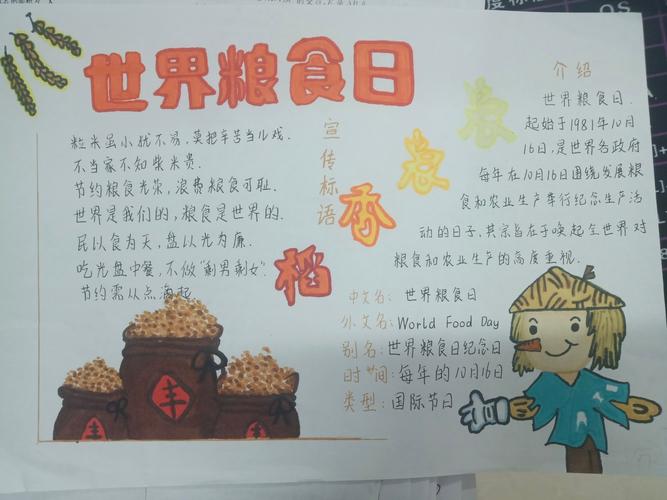 世界粮食日
粒米虽小犹不易,莫把辛苦当儿戏.
不当家不知柴米贵.
节约粮食光荣,浪费粮食可耻.
世界是我们的,粮食是世界的.
民以食为天,盘以光为廉.
吃光盘中餐,不做"剩男剩女".
节约需从点滴起.
宣传标语
稻香
介绍
世界粮食日.
起始于1981年10月
16日,是世界各政府
每年在10月16日围绕发展粮
食和农业生产举行纪念生产活
动的日子,其宗旨在于唤起全世界对
粮食和农业生产的高度重视.
中文名:世界粮食日
外文名:World Food Day
别名:世界粮食日纪念日
时间:每年的10月16日
类型:国际节日
丰